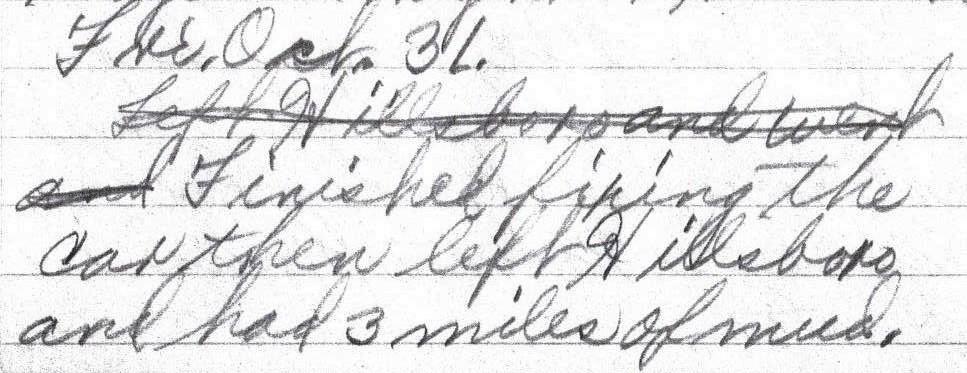 Fri. Oct. 31.
Left Hillsboro and went
and Finished fixing the
car then left Hillsboro
and had 3 miles of mud.